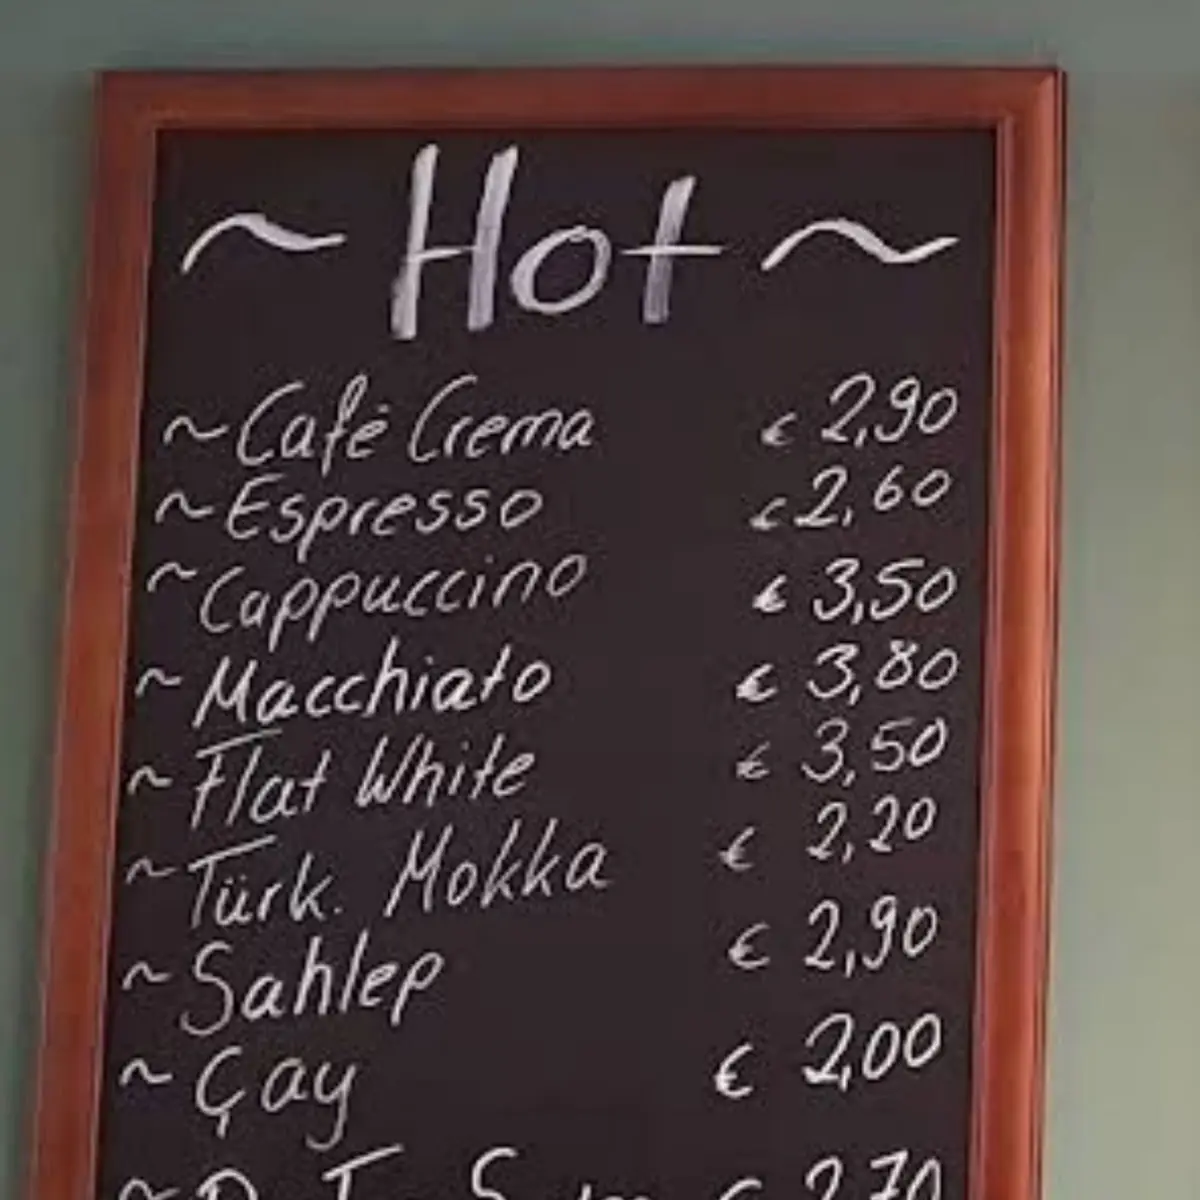 ~ Hot ~
~ Café Crema € 2,90
~ Espresso € 2,60
~ Cappuccino € 3,50
~ Macchiato € 3,80
~ Flat White € 3,50
~ Türk. Mokka € 2,20
~ Sahlep € 2,90
~ Çay € 2,00
€ 2,70